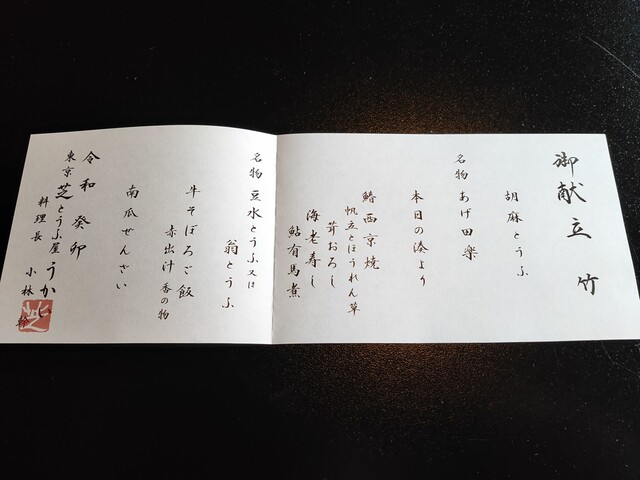 御献立 竹
胡麻とうふ
名物 あげ田楽
本日の湊より
鰆西京焼
帆立とほうれん草
茸おろし
海老寿し
鮎有馬煮
名物 豆水とうふ又は
翁とうふ
牛そぼろご飯
赤出汁 香の物
南瓜ぜんざい
令和癸卯
東京 芝とうふ屋うかい
料理長 小林 幹